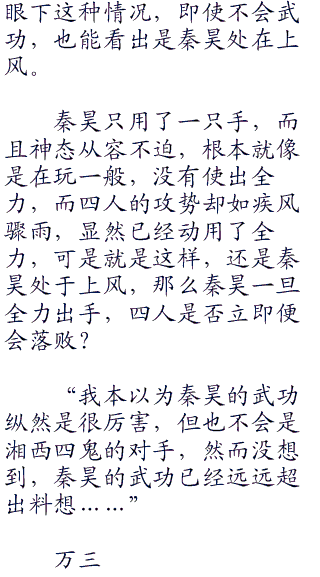 眼下这种情况，即使不会武
功，也能看出是秦昊处在上
风。
秦昊只用了一只手，而
且神态从容不迫，根本就像
是在玩一般，没有使出全
力，而四人的攻势却如疾风
骤雨，显然已经动用了全
力，可是就是这样，还是秦
昊处于上风，那么秦昊一旦
全力出手，四人是否立即便
会落败？
“我本以为秦昊的武功
纵然是很厉害，但也不会是
湘西四鬼的对手，然而没想
到，秦昊的武功已经远远超
出料想……”
万三